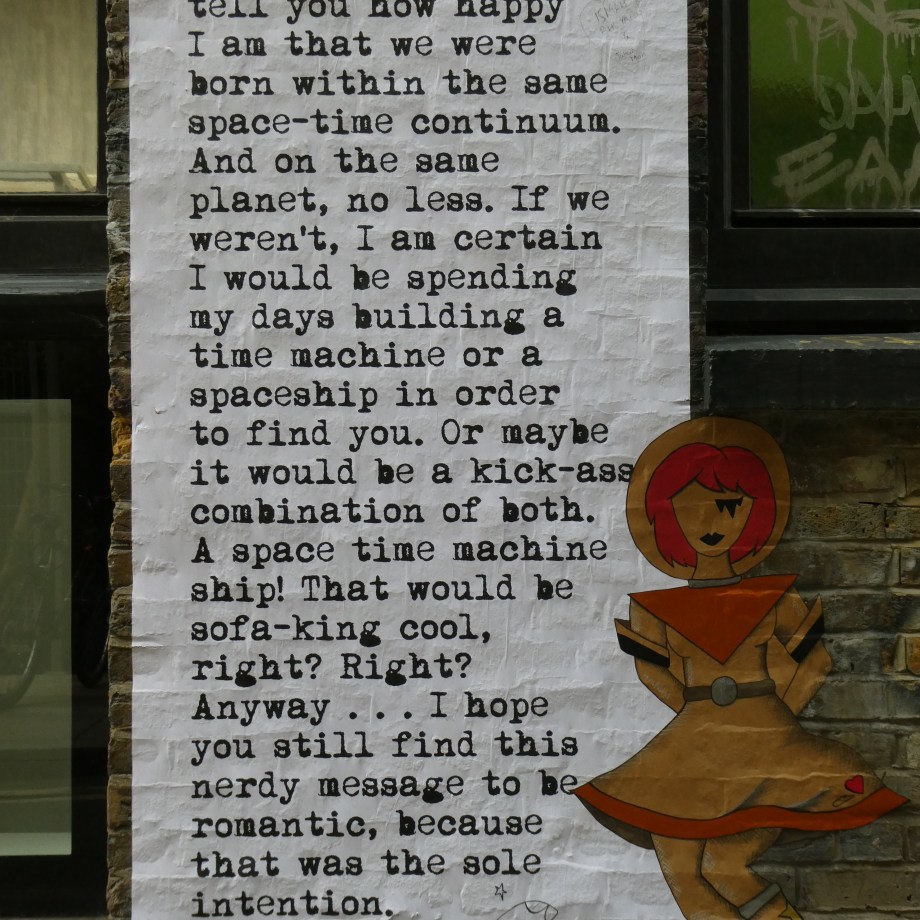 tell you how happy
I am that we were
born within the same
space-time continuum.
And on the same
planet, no less. If we
weren't, I am certain
I would be spending
my days building a
time machine or a
spaceship in order
to find you. Or maybe
it would be a kick-ass
combination of both.
A space time machine
ship! That would be
sofa-king cool,
right? Right?
Anyway . . . I hope
you still find this
nerdy message to be
romantic, because
that was the sole
intention.